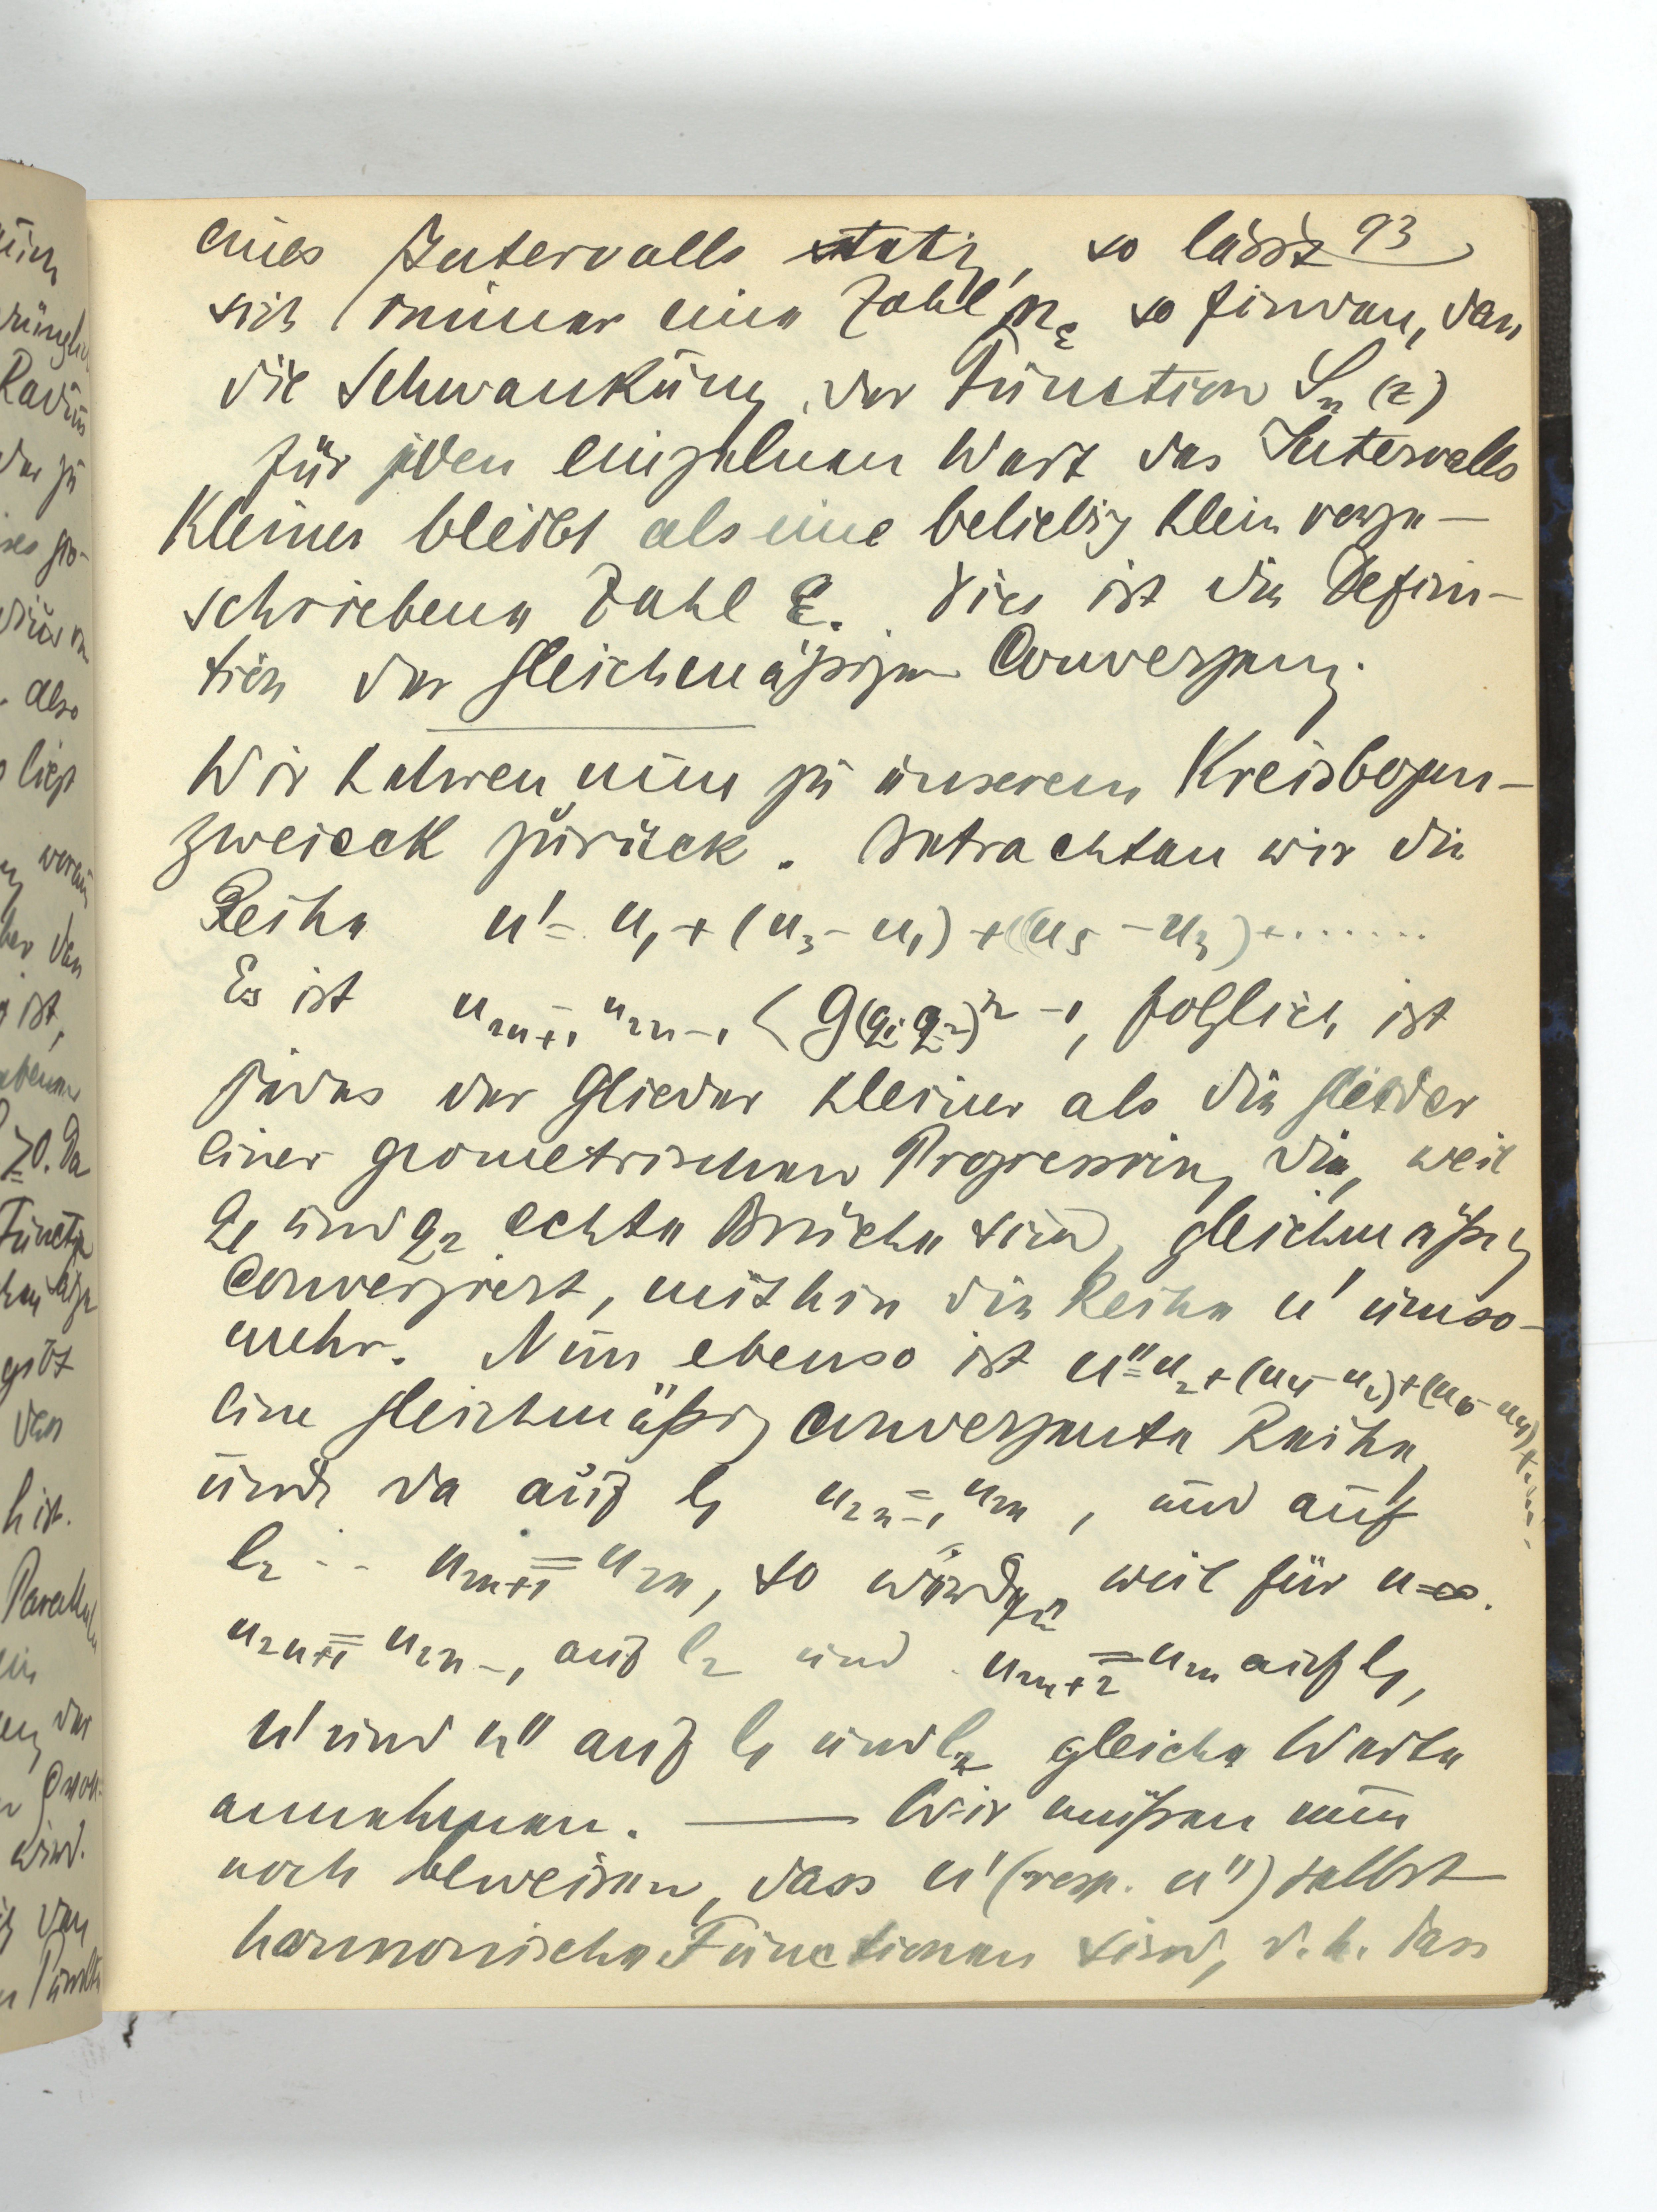 93
eines Intervalls stetig, so lässt
sich immer eine Zahl n_ε so finden, dass
die Schwankung der Function S_n(z)
für jeden einzelnen Wert des Intervalls
kleiner bleibt als eine beliebig klein vorge-
schriebene Zahl ε. Dies ist die Defini-
tion der gleichmäßigen Convergenz.
Wir kehren nun zu unserem Kreisbogen-
zweieck zurück. Betrachten wir die
Reihe u' = u_1 + (u_3 - u_1) + (u_5 - u_3) + .......
Es ist u_{2n+1} - u_{2n-1} < G(q_1 q_2)^{n-1}, folglich ist
jedes der Glieder kleiner als die Glieder
einer geometrischen Progression, die, weil
q_1 und q_2 echte Brüche sind, gleichmäßig
convergiert, mithin die Reihe u' umso-
mehr. Nun ebenso ist u'' = u_2 + (u_4 - u_2) + (u_6 - u_4) + .....
eine gleichmäßig convergente Reihe,
und da auf l_1 u_{2n-1} = u_{2n}, und auf
l_2 -- u_{2n+1} = u_{2n}, so würden weil für n=∞.
u_{2n+1} = u_{2n-1} auf l_2 und u_{2n+2} = u_{2n} auf l_1,
u' und u'' auf l_1 und l_2 gleiche Werte
annehmen. — Wir müßen nun
noch beweisen, dass u' (resp. u'') selbst
harmonische Functionen sind, d.h. dass